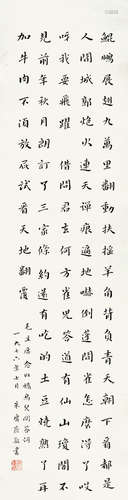 鯤鵬展翅九萬里翻動扶摇羊角背負青天朝下看都是
人間城郭炮火連天彈痕遍地嚇倒蓬間雀怎麽得了哎
呀我要飛躍借問君去何方雀兒答道有仙山瓊閣不
見前年秋月朗訂了三家條約還有吃的土豆燒熟了再
加牛肉不須放屁試看天地翻覆
毛主席念奴嬌鳥兒問答詞
一九七六年七月朱敬書